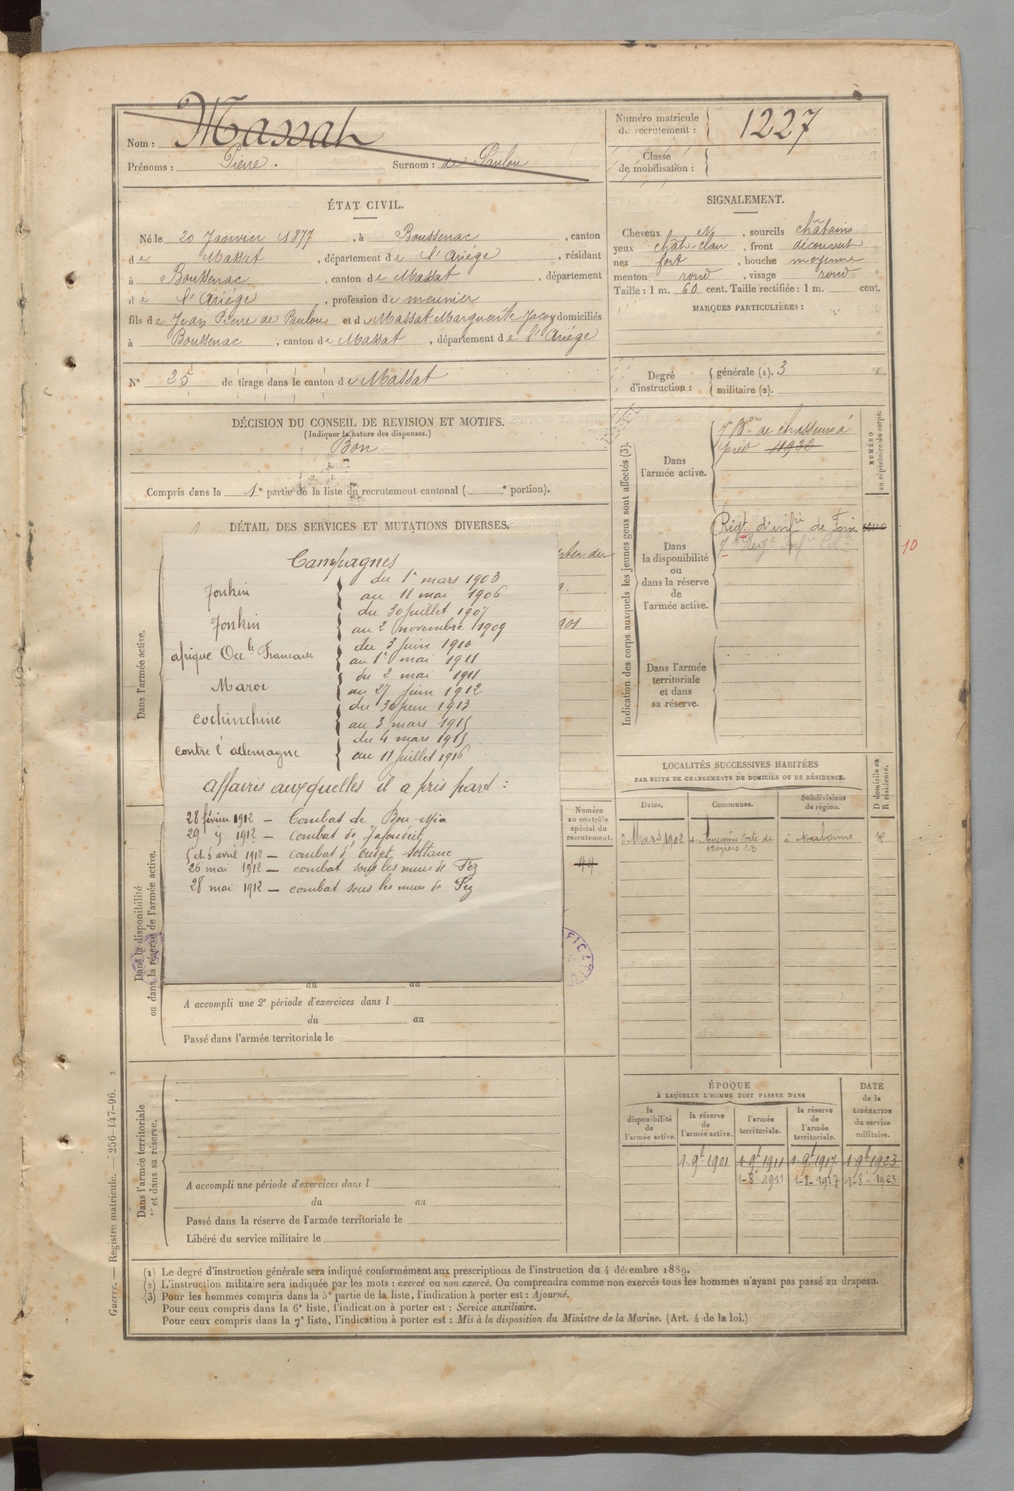 Nom : Massat
Prénoms : Pierre. Surnom : de Paulou
Numéro matricule
de recrutement : 1227
Classe
de mobilisation :
ÉTAT CIVIL.
Né le 20 Janvier 1877, à Boussenac, canton
de Massat, département de l'Ariège, résidant
à Boussenac, canton de Massat, département
d e l'Ariège, profession de meunier
fils de Jean Pierre de Paulou et de Massat Marguerite Jacoy domiciliés
à Boussenac, canton de Massat, département de l'Ariège
N° 25 de tirage dans le canton de Massat
SIGNALEMENT.
Cheveux N, sourcils châtains
yeux chât. clair, front découvert
nez fort, bouche moyenne
menton rond, visage rond
Taille : 1 m. 60 cent. Taille rectifiée : 1 m. cent.
MARQUES PARTICULIÈRES :
Degré
d'instruction :
générale (1). 3
militaire (2).
DÉCISION DU CONSEIL DE REVISION ET MOTIFS.
(Indiquer la nature des dispenses.)
Bon
Compris dans la 1e partie de la liste du recrutement cantonal ( e portion).
DÉTAIL DES SERVICES ET MUTATIONS DIVERSES.
Dans l'armée active.
Campagnes
Tonkin du 1er mars 1903
au 11 mai 1906
Tonkin du 30 juillet 1907
au 2 novembre 1909
Afrique Occle Française du 3 juin 1910
au 1er mai 1911
Maroc du 2 mai 1911
au 27 juin 1912
Cochinchine du 30 juin 1913
au 3 mars 1915
contre l'allemagne du 4 mars 1915
au 11 juillet 1916
affaires auxquelles il a pris part :
28 février 1912 — Combat de
29 1912 — combat de
5 avril 1912 — combat d'
26 mai 1912 — combat sous les murs de Fez
28 mai 1912 — combat sous les murs de Fez
Dans la disponibilité
ou dans la réserve de l'armée active.
du au
A accompli une 2e période d'exercices dans l
du au
Passé dans l'armée territoriale le
Dans l'armée territoriale
et dans sa réserve.
A accompli une période d'exercices dans l
du au
Passé dans la réserve de l'armée territoriale le
Libéré du service militaire le
Numéro
au contrôle
spécial du
recrutement.
44
Indication des corps auxquels les jeunes gens sont affectés (3).
NUMÉRO
au répertoire du corps.
Dans
l'armée active.
7e Bon de chasseurs à
pied 4932
Dans
la disponibilité
ou
dans la réserve
de
l'armée active.
Régt. d'infie de Foix
10
Dans l'armée
territoriale
et dans
sa réserve.
LOCALITÉS SUCCESSIVES HABITÉES
PAR SUITE DE CHANGEMENTS DE DOMICILE OU DE RÉSIDENCE.
Dates. Communes. Subdivisions
de région. D domicile ou
R résidence.
Mars 1902 à Narbonne R
ÉPOQUE
À LAQUELLE L'HOMME DOIT PASSER DANS
DATE
de la
LIBÉRATION
du service
militaire.
la
disponibilité
de
l'armée active.
la réserve
de
l'armée active.
l'armée
territoriale.
la réserve
de
l'armée
territoriale.
1 9b 1901 1 9b 1911 1 9b 1917 1 9b 1923
1-8-1911 1-8-1917 1-8-1923
(1) Le degré d'instruction générale sera indiqué conformément aux prescriptions de l'instruction du 4 décembre 1889.
(2) L'instruction militaire sera indiquée par les mots : exercé ou non exercé. On comprendra comme non exercés tous les hommes n'ayant pas passé au drapeau.
(3) Pour les hommes compris dans la 5e partie de la liste, l'indication à porter est : Ajourné.
Pour ceux compris dans la 6e liste, l'indication à porter est : Service auxiliaire.
Pour ceux compris dans la 7e liste, l'indication à porter est : Mis à la disposition du Ministre de la Marine. (Art. 4 de la loi.)
Guerre. — Registre matricule. 256-147-96.